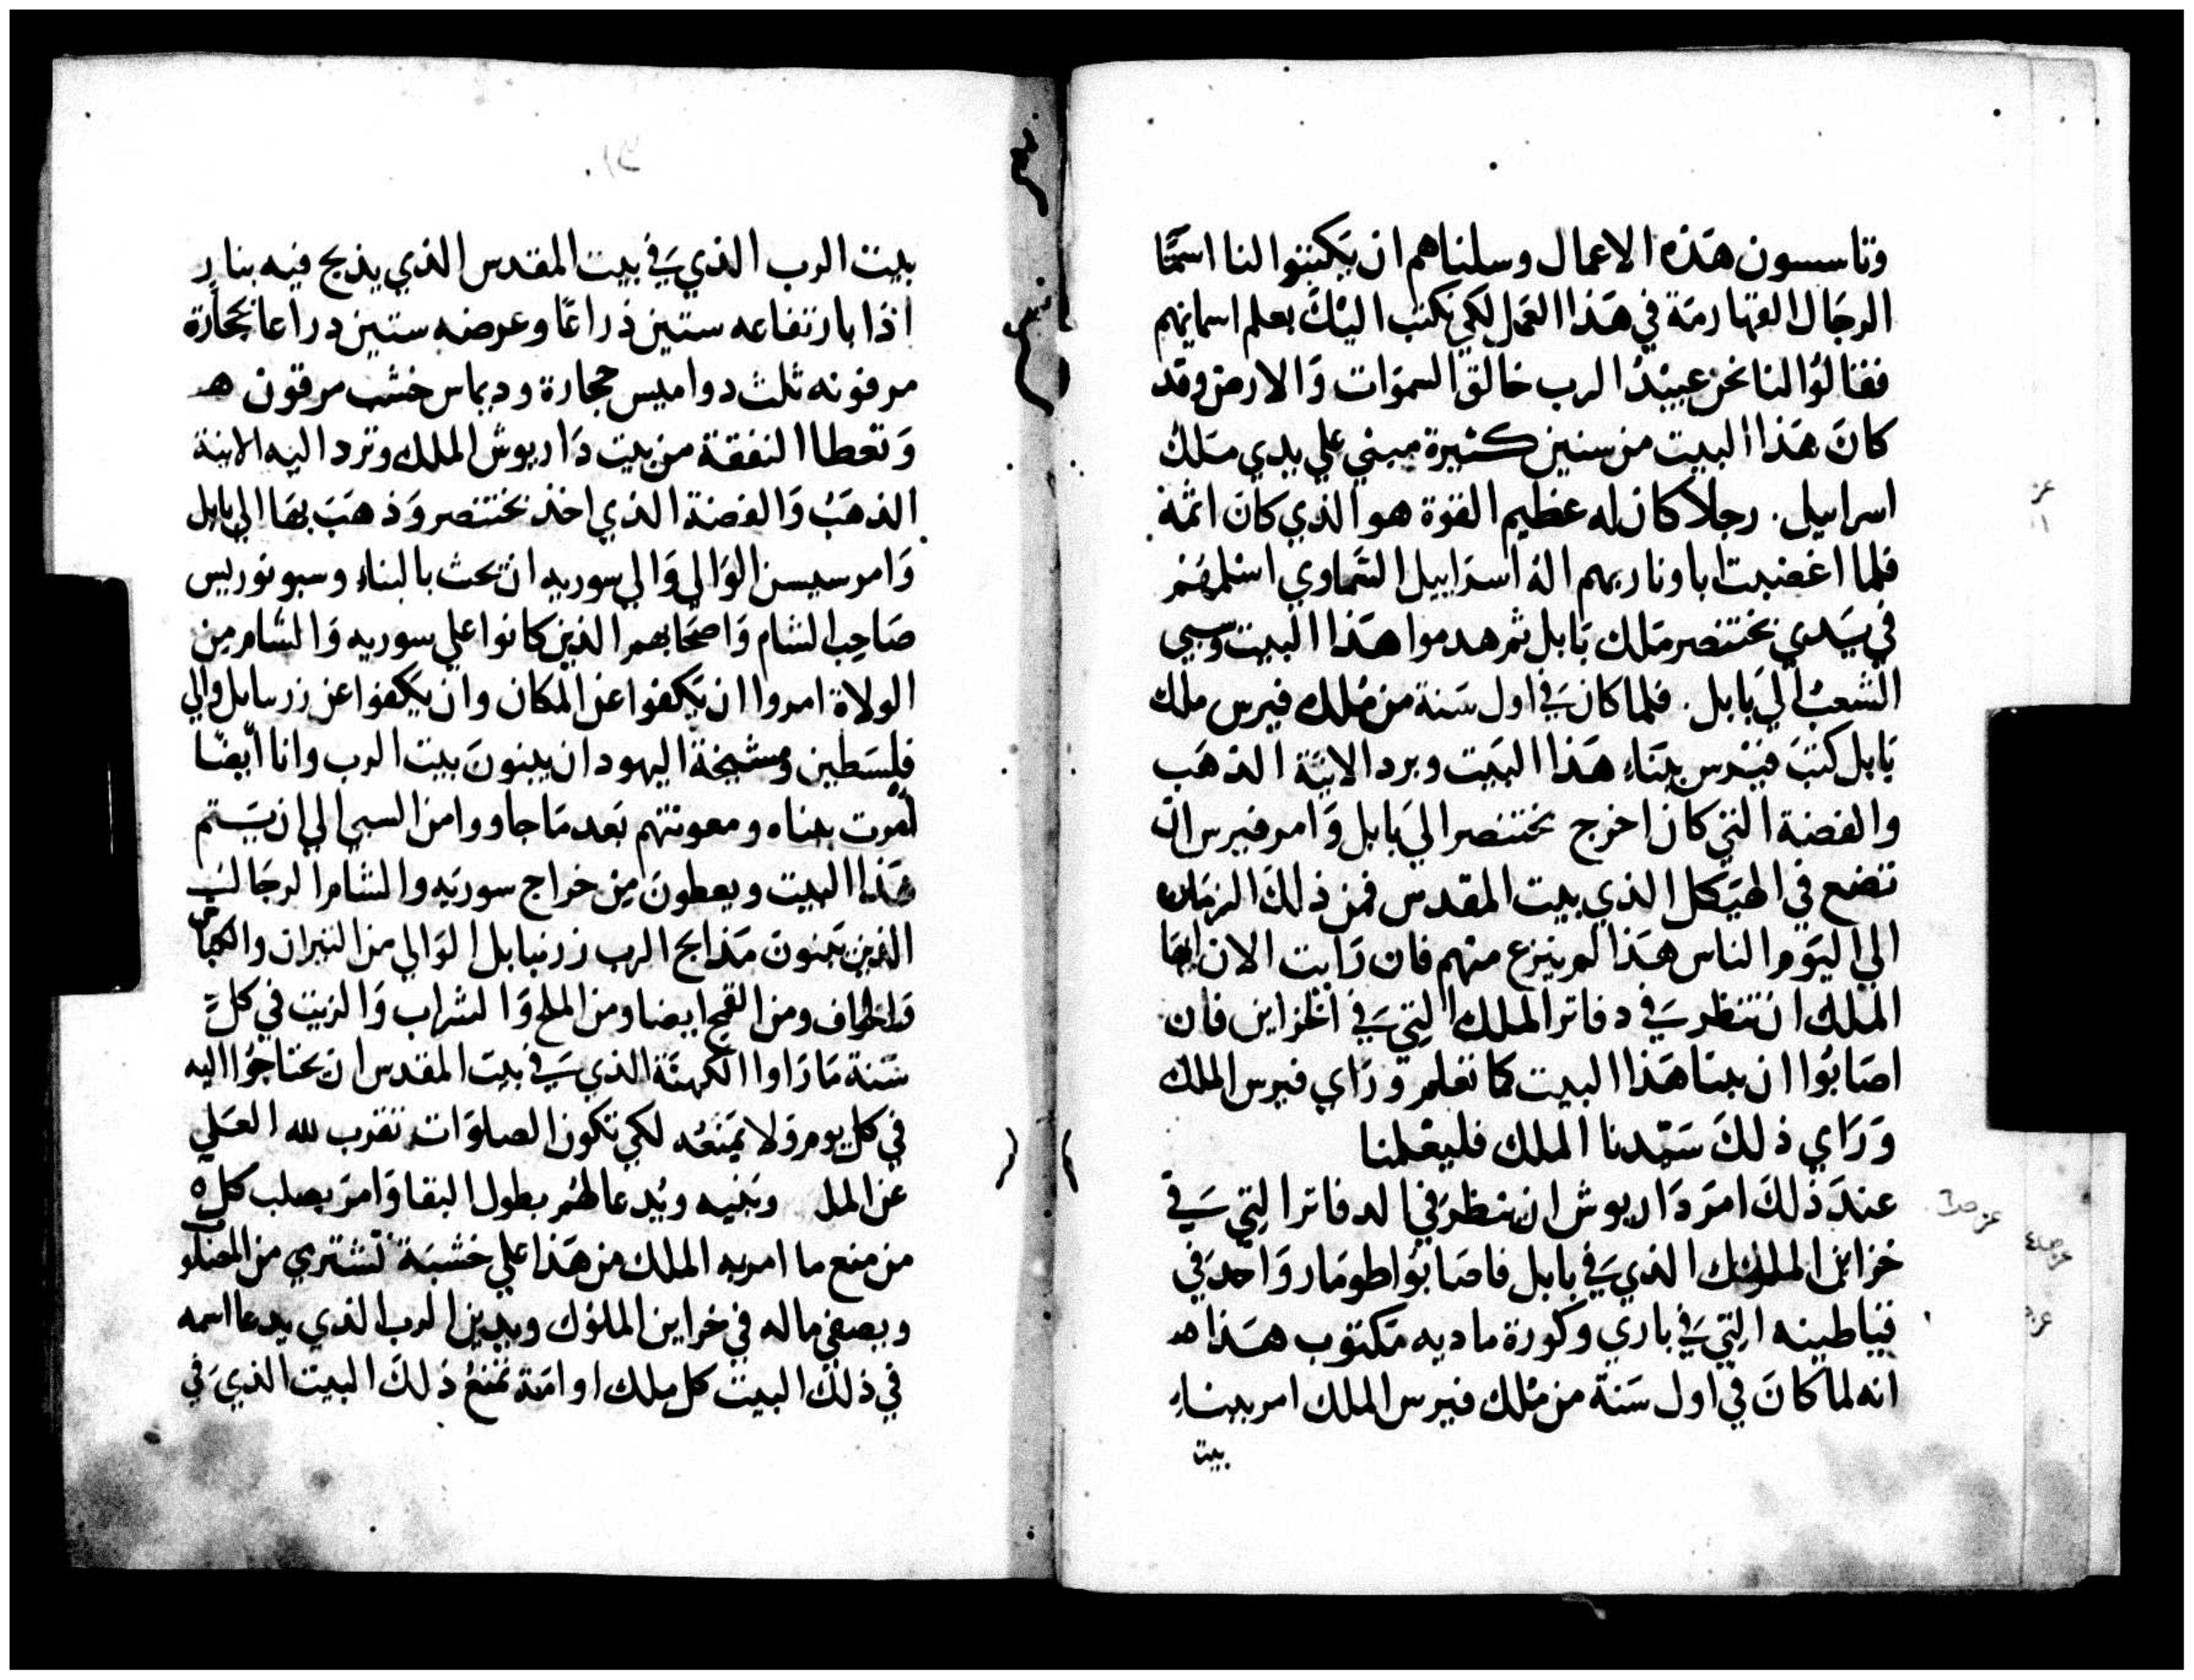 وتاسسون هذه الاعمال وسلناهم ان يكتبوا لنا اسمًا
الرجال القهارمة في هذا العمل لكي نكتب اليك بعلم اسمايهم
فقالوُا لنا نحن عبيدُ الرب خالق السموَات وَالارض وقد
كانَ هَذا البيت من سنين كثيرة مبني علي يدي ملك
اسراييل . رجلا كان له عظيم القوة هو الذي كان اتمه
فلما اغضبت اباونا ربهم اله اسراييل السماوي اسلمهم
في يَدي بختنصر مَلك بَابل ثم هدموا هَذا البيت وسبي
الشعبُ الي بَابل . فلما كان في اول سَنة من مُلك فيرس ملك
بَابل كتبَ فيرس ببنَاء هَذا البيَت وبرد الانية الذهَب
والفضة التي كان اخرج بختنصر الي بَابل وَامر فيرس ان
تضع في الهيَكل الذي ببيت المقدس فمن ذلكَ الزمان
الي اليوَم الناس هَذا لم ينزع منهم فان رَايت الان ايها
الملك ان تنظر في دفاتر الملك التي في الخزاين فان
اصَابُوا ان بنا هَذا البيت كما نعلم وَرَاي فيرس الملك
وَرَاي ذلكَ سَيّدنا الملك فليعْلمنا
عندَ ذلكَ امرَ دَاريوش ان ينظرَ في الدفاتر التي في
خزاين الملوك الذي في بابل فاصَابُوا طومَار وَاحد في
فيباطينه التي في باري وكورة ماديه مَكتوب هَذا هـ
انه لما كانَ في اول سَنة من مُلك فيرس الملك امر ببناء
بيت
بيت الرب الذي في بيت المقدس الذي يذبح فيه بنار
اذا بارتفاعه ستين ذراعًا وعرضه ستين دراعا بحجارَة
مرفونه ثلث دواميس حجارة وديماس خشب مرقون هـ
وَتعطا النفقة من بيت دَاريوش الملك وترد اليه الانية
الذهَبُ وَالفضة الذي اخذ بختنصر وَذهَبَ بهَا الي بابل
وَامر سيسن الوَالي وَالي سوريه ان يحث بالبناء وسبوتوريس
صَاحِب الشام وَاصحَابهم الذين كانوا علي سوريه وَالشام من
الولاة امروا ان يَكفوا عن المكان وان يَكفوا عن زربابل والي
فلسَطين ومشيخة اليهود ان يبنونَ بيت الرب وانا ايضًا
امرت ببناه ومعونتهم بَعد مَا جاووا من السبي الي ان يَستم
هَذا البيت ويعطونَ مِن خراج سوريَه والشام الرجَال
الذين يَبنونَ مَذابح الرب زربابل الوَالي من النيران والكباش
وَالخراف ومن القمح ايضا ومن الملح وَالشراب وَالزيت في كلَ
سَنة مَا رَاوا الكهنَة الذي في بيت المقدس ان يحتاجوُا اليه
في كل يوم وَلا يمَنعُه لكي تكون الصلوَات تقرب لله العَلي
عن الملـ وبَنيه ويُدعا لهُم بطول البقا وَامرَ يصلب كل
من منع ما امر به الملك من هَذا علي خشبَة تشتري من
ويصفي ماله في خزاين الملوُك وبدين الرب الذي يدعا اسمه
في ذلكَ البيت كل ملك او امَة تمنعُ ذلكَ البيت الذي في